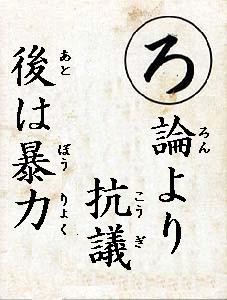 ろ
論より
抗議
後は暴力
ろん
こうぎ
あと
ぼうりょく